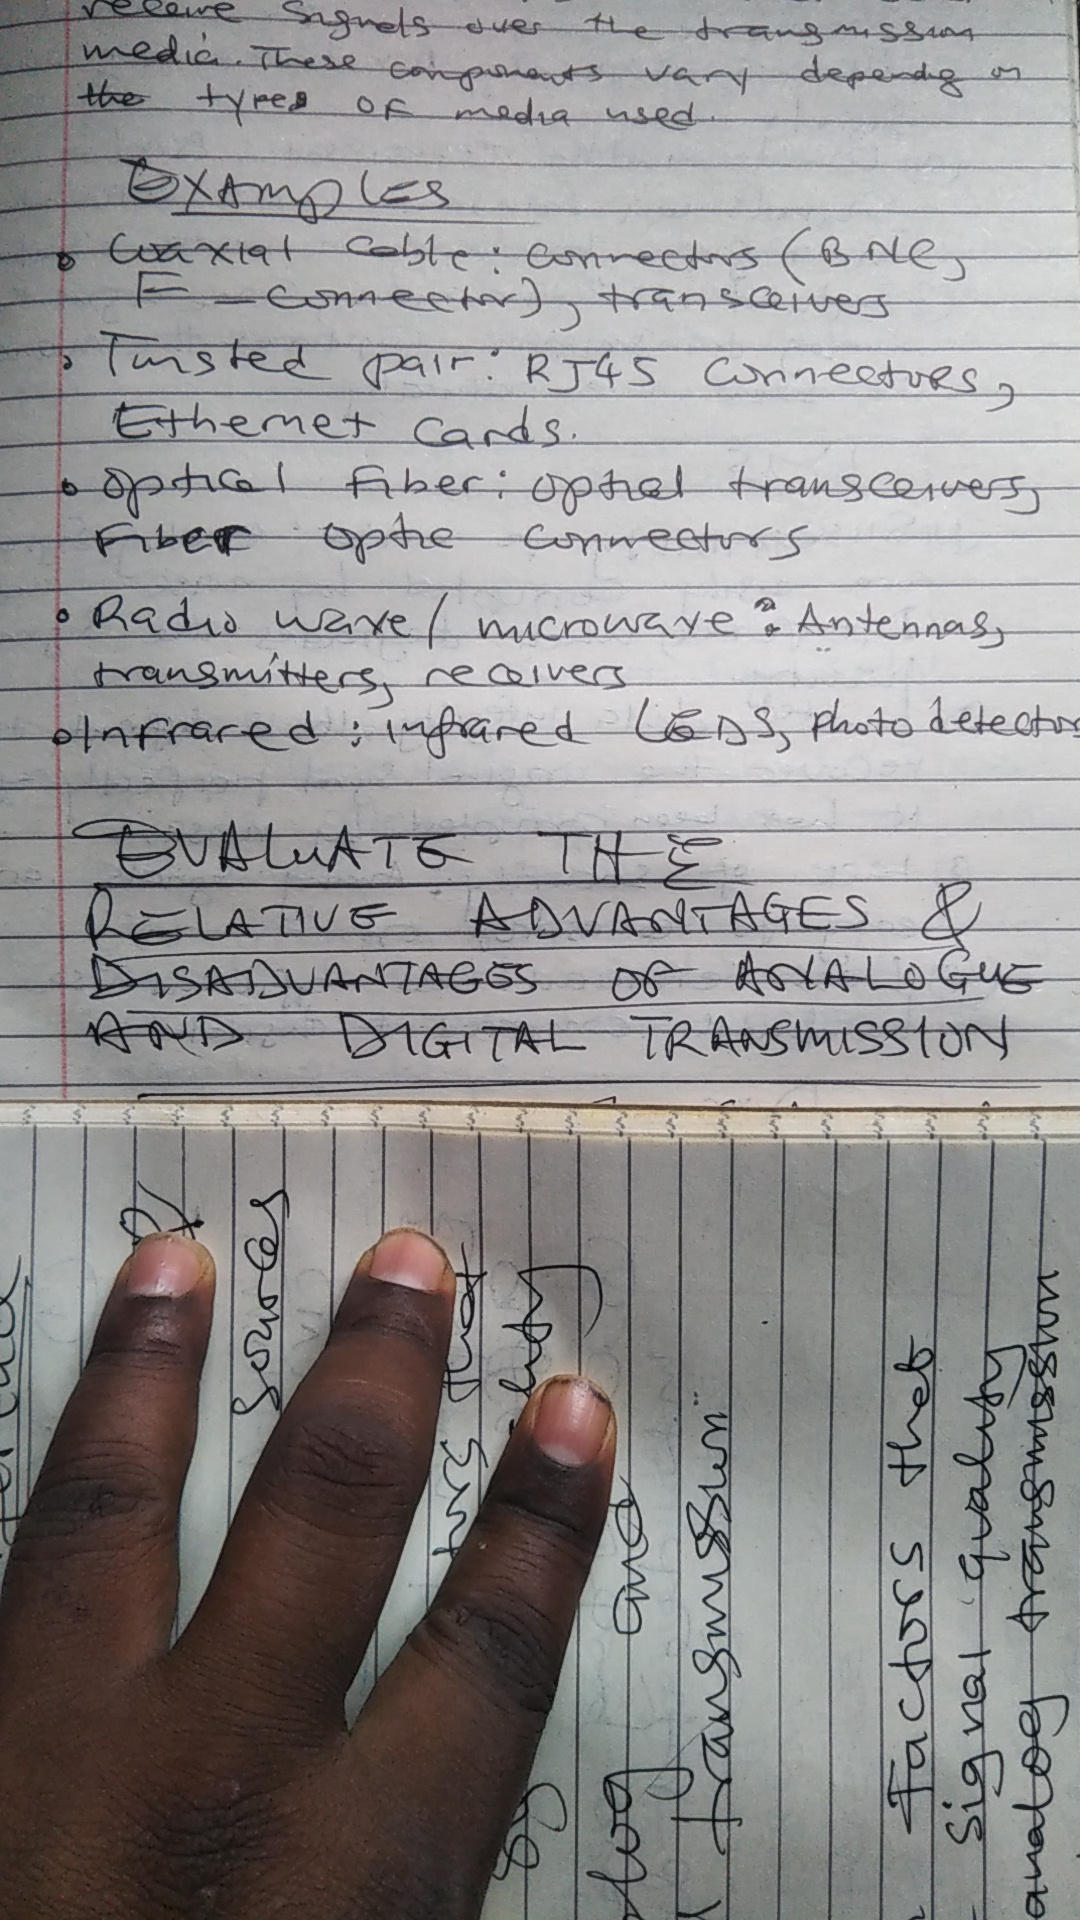 receive signals over the transmission
media. These components vary dependg on
the types of media used.
Examples
Coaxial Cable: connectors (BNC,
F-connector), transceivers
Twisted pair: RJ45 connectors,
Ethernet cards.
Optical fiber: optical transceivers,
Fiber optic connectors
Radio wave/microwave: Antennas,
transmitters, receivers
Infrared: infrared LEDs, photo detectors
EVALUATE THE
RELATIVE ADVANTAGES &
DISADVANTAGES OF ANALOGUE
AND DIGITAL TRANSMISSION
Sources
that
and
transmission
Factors that
Signal quality
analog transmission